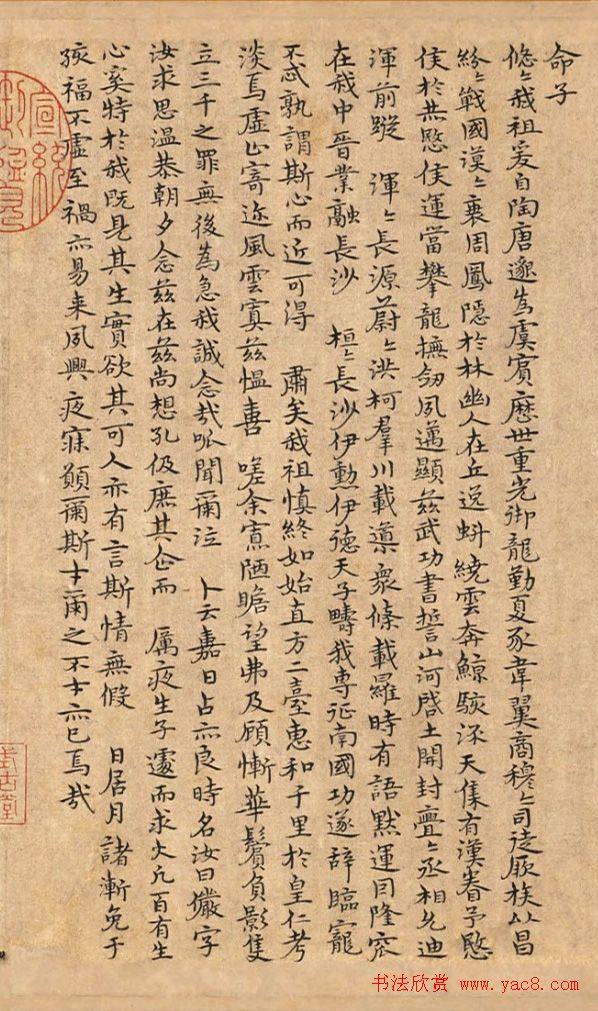 命子
悠〻我祖爰自陶唐邈為虞賓歷世重光御龍勤夏豕韋翼商穆〻司徒厥族以昌
紛〻戰國漠〻衰周鳳隱於林幽人在丘逸虯繞雲奔鯨駭流天集有漢眷予愍
侯於赫愍侯運當攀龍撫劒夙邁顯茲武功書誓山河啓土開封亹〻丞相允迪
渾前蹤 渾〻長源蔚〻洪柯羣川載導衆條載羅時有語默運因隆窊
在我中晉業融長沙 桓〻長沙伊勳伊德天子疇我專征南國功遂辭臨寵
不忒孰謂斯心而近可得 肅矣我祖慎終如始直方二臺惠和千里於皇仁考
淡焉虛止寄迹風雲寘茲慍喜 嗟余寡陋瞻望弗及顧慚華鬢負影隻
立三千之罪無後為急我誠念哉呱聞爾泣 卜云嘉日占亦良時名汝曰儼字
汝求思溫恭朝夕念茲在茲尚想孔伋庶其企而 厲夜生子遽而求火凡百有生
心奚特於我既見其生實欲其可人亦有言斯情無假 日居月諸漸免于
孩福不虛至禍亦易来夙興夜寐願爾斯才爾之不才亦已焉哉
宣統
式古堂
书法欣赏 www.yac8.com